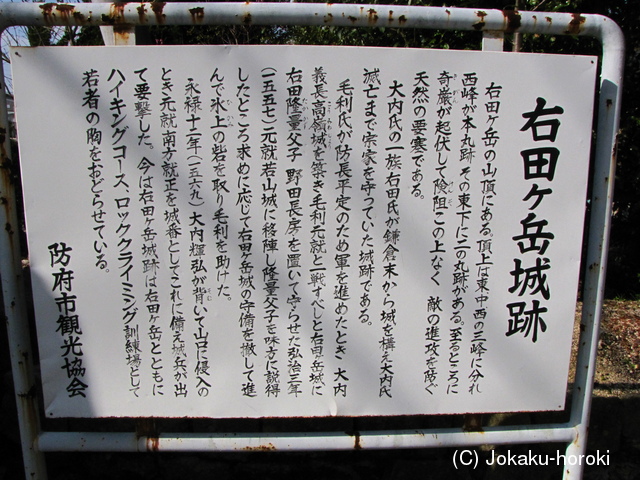 右田ヶ岳城跡
右田ヶ岳の山頂にある。頂上は東中西の三峰に分れ
西峰が本丸跡 その東下に二の丸跡がある。至るところに
奇巌が起伏して険阻この上なく 敵の進攻を防ぐ
天然の要塞である。
大内氏の一族右田氏が鎌倉末から城を構え大内氏
滅亡まで宗家を守っていた城跡である。
毛利氏が防長平定のため軍を進めたとき 大内
義長高嶺城を築き毛利元就と一戦すべしと右田岳城に
右田隆量父子 野田長房を置いて守らせた弘治三年
(一五五七)元就若山城に移陣し隆量父子を味方に説得
したところ求めに応じて右田ヶ岳城の守備を撤して進
んで氷上の砦を取り毛利を助けた。
永禄十二年(一五六九)大内輝弘が背いて山口に侵入の
とき元就南方就正を城番としてこれに備え城兵が出
て要撃した。今は右田ヶ岳城跡は右田ヶ岳とともに
ハイキングコース、ロッククライミング訓練場として
若者の胸をおどらせている。
防府市観光協会
(C) Jokaku-horoki